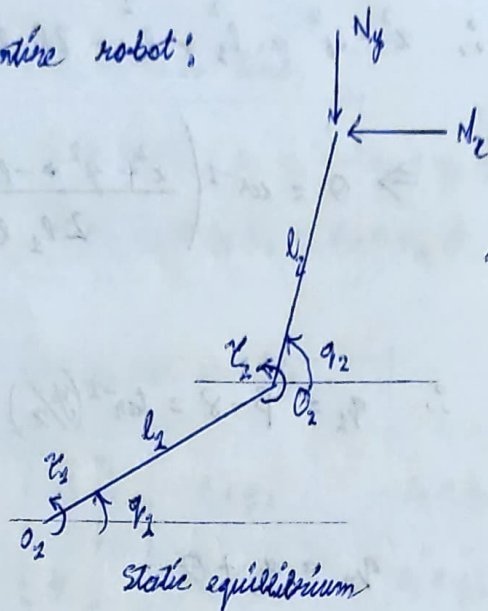 entire robot:
N_y
N_x
l_2
τ_2
q_2
O_2
l_2
τ_2
q_2
O_2
Static equilibrium